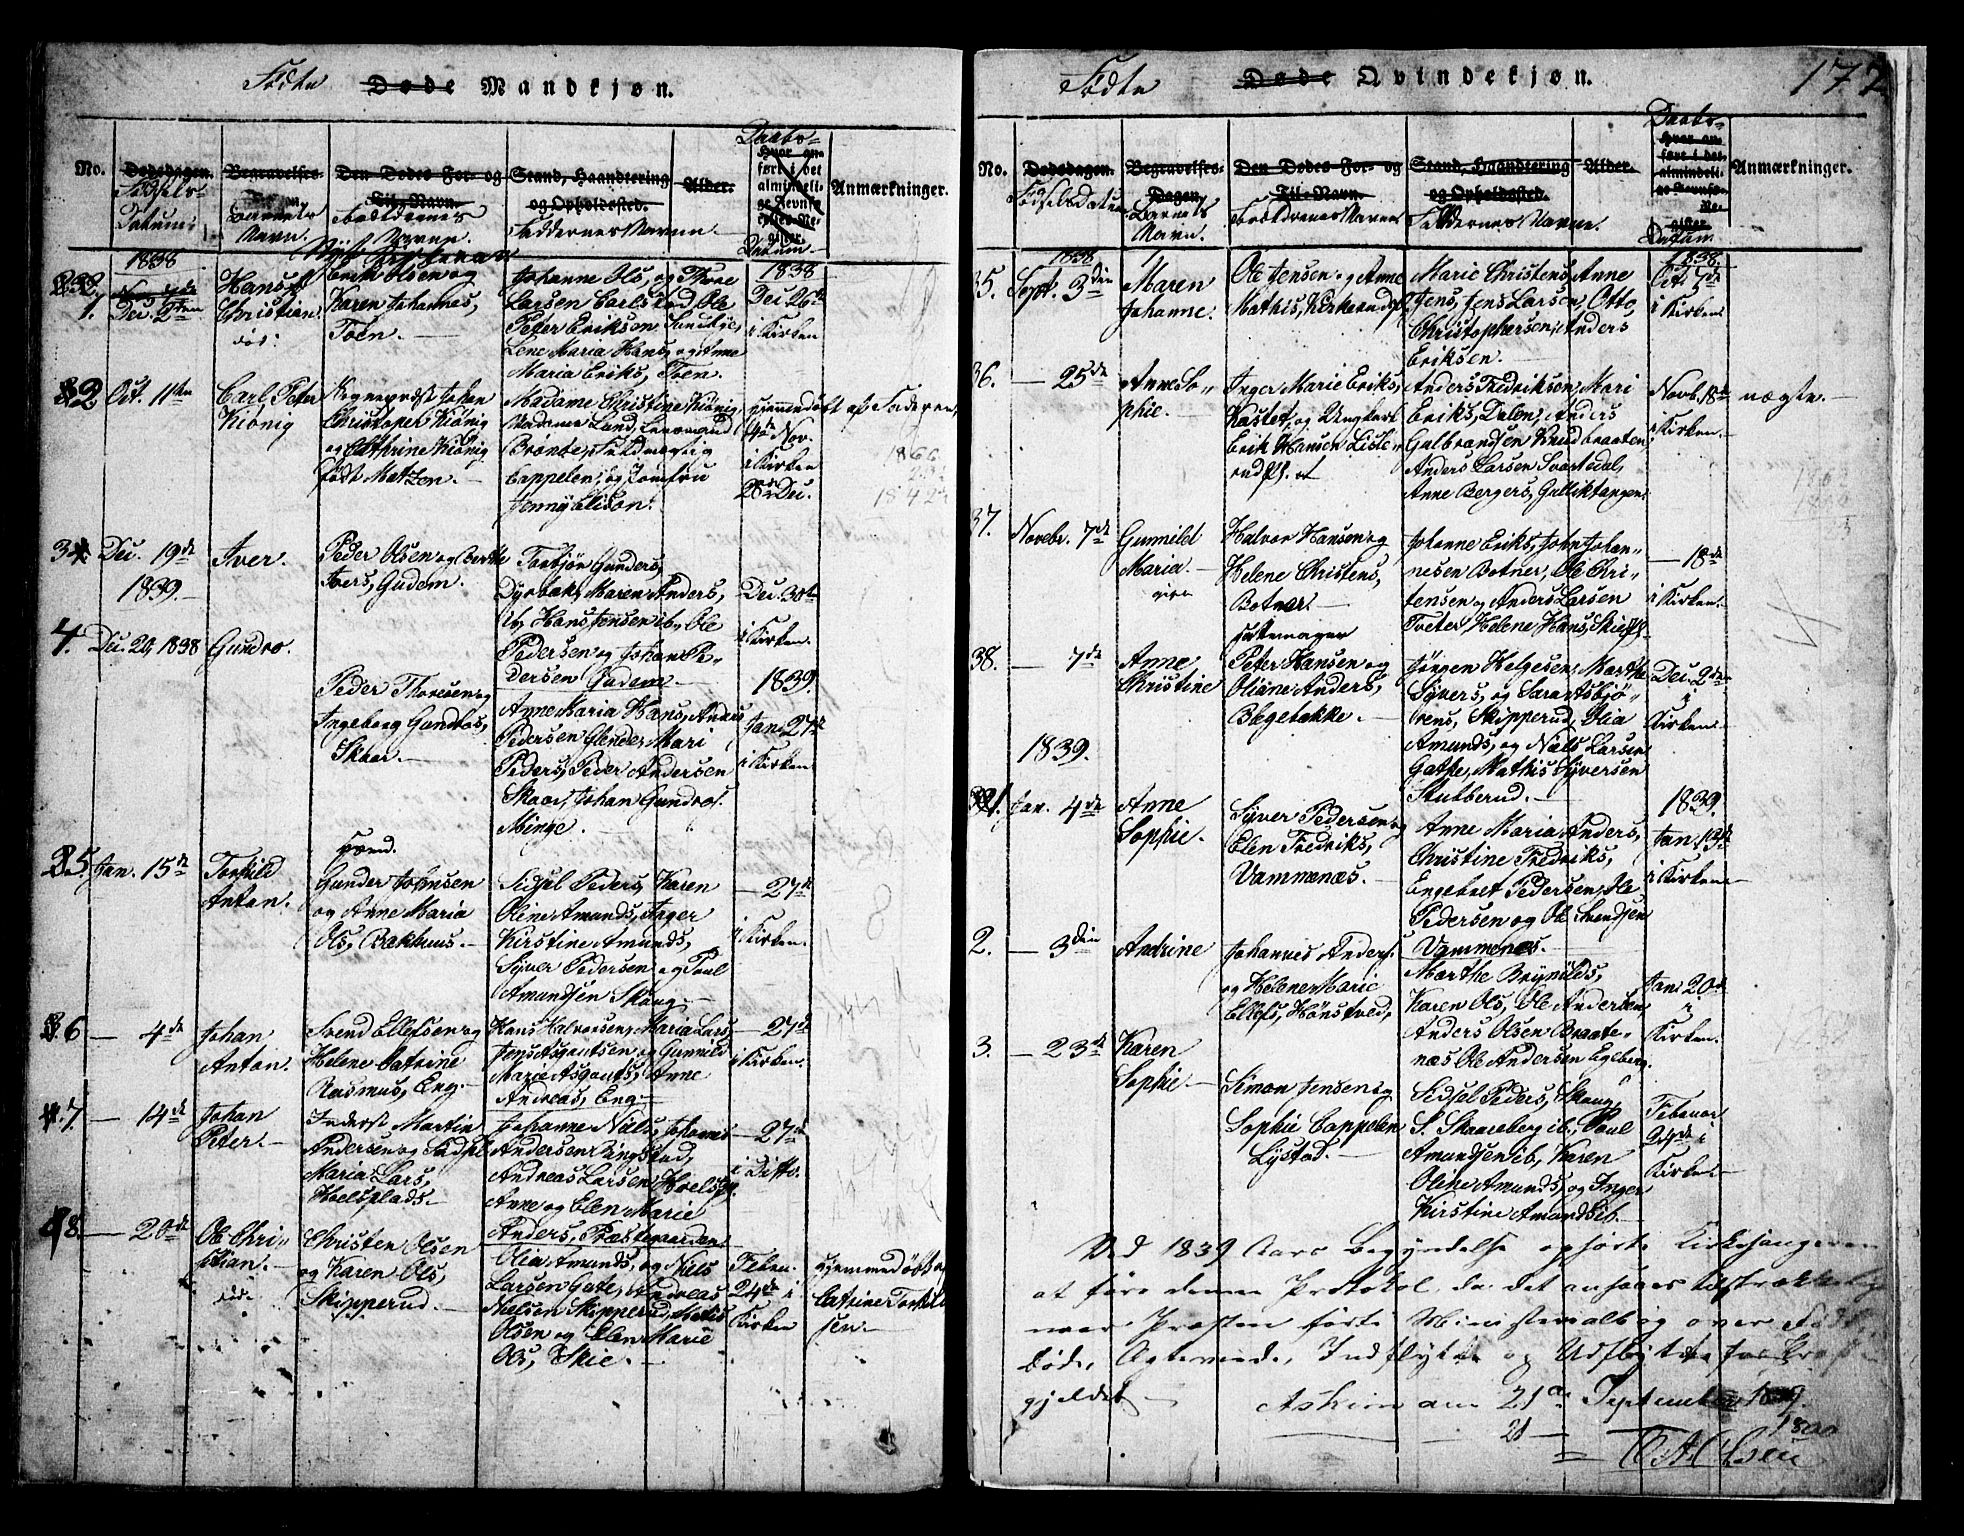 Fødte Døde Mandkjøn.
No.
Dødsdagen.
Fødsels-
Datum.
Begravelses-
Dagen.
Barnets
Navn.
Den Dødes For- og
Til-Navn.
Forældrenes
Navne.
Stand, Haandtering
og Opholdssted.
Faddernes Navne.
Alder.
Daabs-
Hvor an-
ført i det
almindeli-
ge Jevnfø-
relses-Re-
gister.
Datum.
Anmærkninger.
1838
1.
Dec. 2den
Hans
Christian
Erik Olsen og
Karen Johannes,
Toen.
Johanne Ols, og Thore
Larsen Carlstad, Ole
Peter Eriksen Sandbye,
Lene Maria Hans, og Anne
Maria Eriks, Toen.
1838
Dec. 26de
i Kirken
2
Oct. 11te
Carl Peter
Kiønig
Sognepræst Johan
Christopher Kiønig
og Cathrine Kiønig
født Matzen.
Madame Christine Kiønig,
Madame Lund,
Brønte, Fuldmægtig
Cappelen, og Jomfru
Jenny
hjemmedøbt af Faderen,
4de Nov.
i Kirken
28de Dec.
3
Dec. 19de
1839.
Iver.
Peder Olsen og Berthe
Ivers, Gudem.
Torbjør Gunders,
Dyrbak, Maren Anders,
ib, Hans Jensen ib., Ole
Pedersen og Johan Pe-
dersen Gudem.
Dec. 30te
i Kirken.
4.
Dec. 20, 1838
Gundro.
Peder Thoresen og
Ingeborg Gundros,
Skaar.
Anne Maria Hans, Anders
Pedersen Slende, Mari
Peders, Peder Andersen
Skaar, Johan Gundros.
Minge.
1839.
Jan. 27de
i Kirken.
5.
Jan. 15de
Torkild
Anton.
Gunder Johnsen
og Anne Maria
Ols, Bakhuus.
Sidsel Peders, Karen
Oline Amunds, Inger
Kirstine Amunds,
Syver Pedersen og Poul
Amundsen Skaug.
— 27de
i Kirken.
6
— 4de
Johan
Anton.
Svend Ellefsen og
Helene Catrine
Rasmus, Eng.
Hans Halvorsen, Maria Lars,
Jens Asgautsen og Gunnild
Marie Asgauts, Anne
Andreas, Eng.
— 27de
i Kirken.
7.
— 14de
Johan
Peter.
Inderst Martin
Andersen og Sidsel
Maria Lars,
Hoelsplads.
Johanne Niels, Johannes
Andersen Ringstad,
Andreas Larsen Hoelspl.
Anne og Elen Marie
Anders, Præstegaarden.
— 27de
i Ditto.
8.
— 20de
Ole Chri-
stian.
Christen Olsen
og Karen Ols,
Skipperud.
Olia Amunds, og Niels
Larsen Gate, Andreas
Nielsen Skipperud, Mathis
Olsen og Elen Marie
Ols, Skie.
Febru.
24de i
Kirken
hjemmedøbt af
Catrine Torkild
sen.
Fødte Døde Qvindekjøn.
177
No.
Dødsdagen.
Fødsels Datum
Begravelses-
Dagen.
Barnets
Navn.
Den Dødes For- og
Til-Navn.
Forældrenes Navne
Stand, Haandtering
og Opholdssted.
Faddernes Navne.
Alder.
Daabs-
Hvor an-
ført i det
almindeli-
ge Jevnfø-
Re-
gister
Datum.
Anmærkninger.
1838
35.
Sept. 3die
Maren
Johanne.
Ole Jensen og Anne
Mathis, Kirkerudpl.
Marie Christens, Anne
Jens, Jens Larsen, Otto
Christophersen, Anders
Eriksen.
1838.
Oct. 7de
i Kirken
36.
— 25de
Anne So-
phie.
Inger Marie Eriks,
Kastet, og Ungkarl
Erik Hansen Lisle-
rudpl.
Anders Fredriksen, Mari
Eriks, Dalen, Anders
Gulbrandsen Knudbraaten,
Anders Larsen Svartedal,
Anne Bergers, Gulliktangen
Novb. 18de
i Kirken.
nægte.
37.
Novebr. 7de
Gunnild
Maria.
Halvor Hansen og
Helene Christens,
Botner.
Johanne Eriks, John Johan-
nesen Botner, Ole Chri-
stensen og Anders Larsen
Træter, Helene Hans, Skiepl.
— 18de
i Kirken.
38.
— 7de
Anne
Christine
Peter Hansen og
Oliane Anders,
Blegebakke.
Jørgen Helgesen, Marthe
Syvers, og Sara 
Skipperud, Olia
Amunds, og Niels Larsen
Gathe, Mathis Syversen
Stubberud.
Dec. 2den
i
Kirken.
1839.
1.
Jan. 4de
Anne
Sophie.
Syver Pedersen og
Elen Fredriks,
Vammenæs.
Anne Maria Anders,
Christine Fredriks,
Engebret Pedersen, Ole
Pedersen og Ole Svendsen
Vammenæs.
1839.
Jan. 13de
i Kirken
2.
— 3die
Andrine
Johannes Anders.
og Helene Marie
Ellefs, Hønstved,
Marthe Brynilds,
Karen Ols, Ole Andersen,
Anders Olsen Braate-
næs, Ole Andersen Egeberg.
Jan. 20de
i
Kirken.
3.
— 23de
Karen
Sophie.
Simon Jensen og
Sophie Cappelen
Lystad.
Sidsel Peders, Skaug,
S. Skaareberg ib., Poul
Amundsen ib, Karen
Oline Amunds, og Inger
Kirstine Amunds ib.
Februar
24de i
Kirken.
Ved 1839 Aars Begyndelse ophørte Kirkesangeren
at føre denne Protokol, da det ansaaes tilstrækkelig
naar Præsten førte Ministerialbog over Fødte
Døde, Ægteviede, Indflyttede og Udflyttede for Præste
gjeldet.
Askim am 21de September